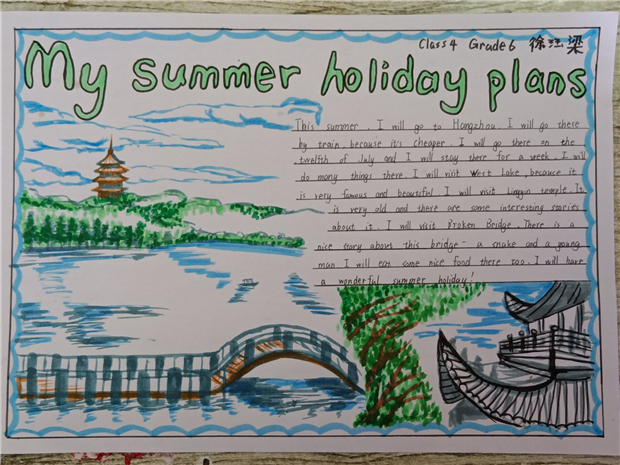 Class 4 Grade 6 徐江梁
My summer holiday plans
This summer, I will go to Hangzhou. I will go there
by train because it's cheaper. I will go there on the
twelfth of July and I will stay there for a week. I will
do many things there. I will visit West Lake, because it
is very famous and beautiful. I will visit Lingyin temple. It
is very old and there are some interesting stories
about it. I will visit Broken Bridge. There is a
nice story about this bridge - a snake and a young
man I will eat some nice food there too. I will have
a wonderful summer holiday!